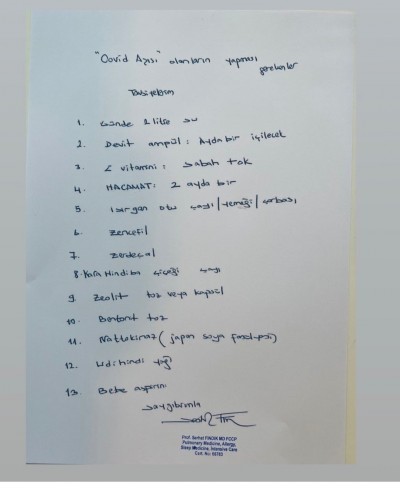 "Covid Aşısı" olanların yapması
gerekenler
1. Günde 2 litre su
2. Devit ampul: Ayda bir içilecek
3. C vitamini: Sabah tok
4. HACAMAT: 2 ayda bir
5. Isırgan otu çayı/yemeği/çorbası
6. Zencefil
7. Zerdeçal
8. Kara Hindiba çiçeği çayı
9. Zeolit toz veya kapsül
10. Bentonit toz
11. Nattokinaz (japon soya fasulyesi)
12. Udi hindi yağı
13. Bebe aspirini
Saygılarımla
Prof. Serhat FINDIK MD FCCP
Pulmonary Medicine, Allergy,
Sleep Medicine, Intensive Care